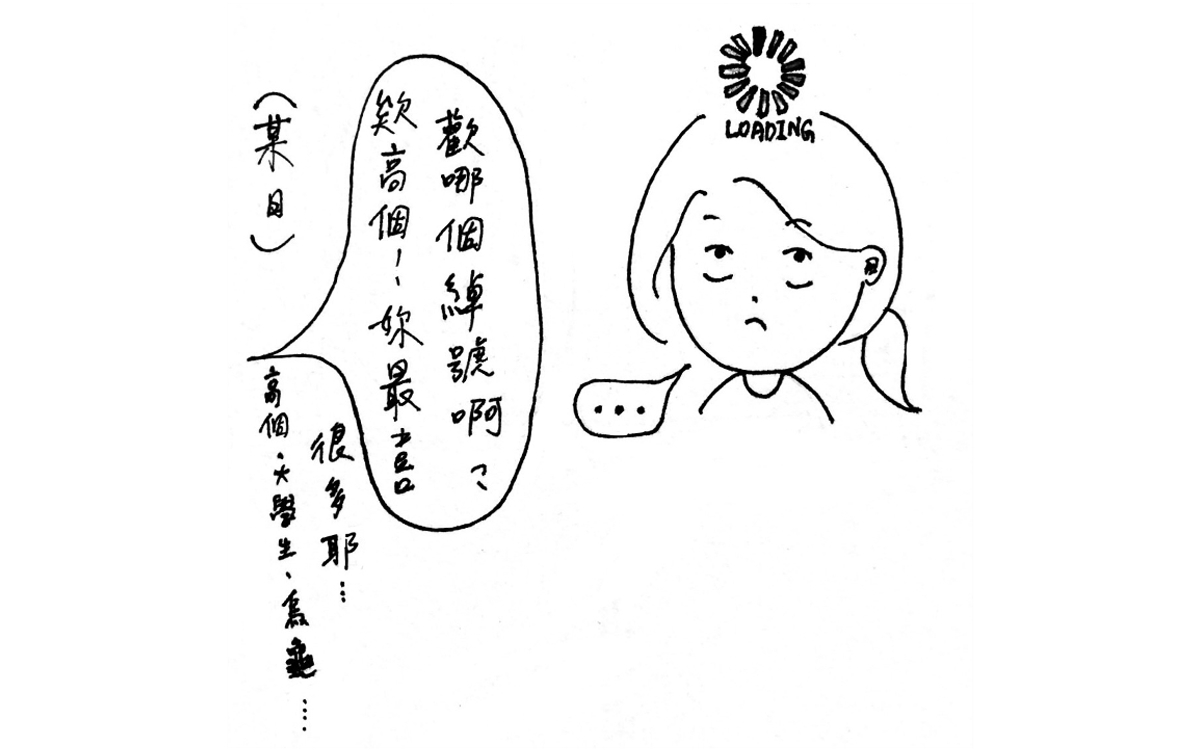 (某日)
欸高個!妳最喜
歡哪個綽號啊?
高個、大學生、烏龜……
很多耶…
LOADING
...